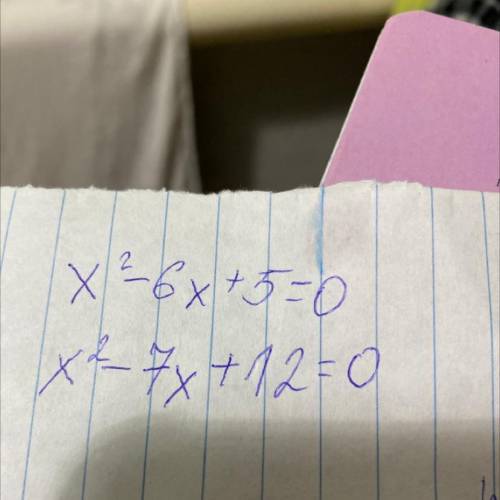 x²-6x+5=0
x²-7x+12=0